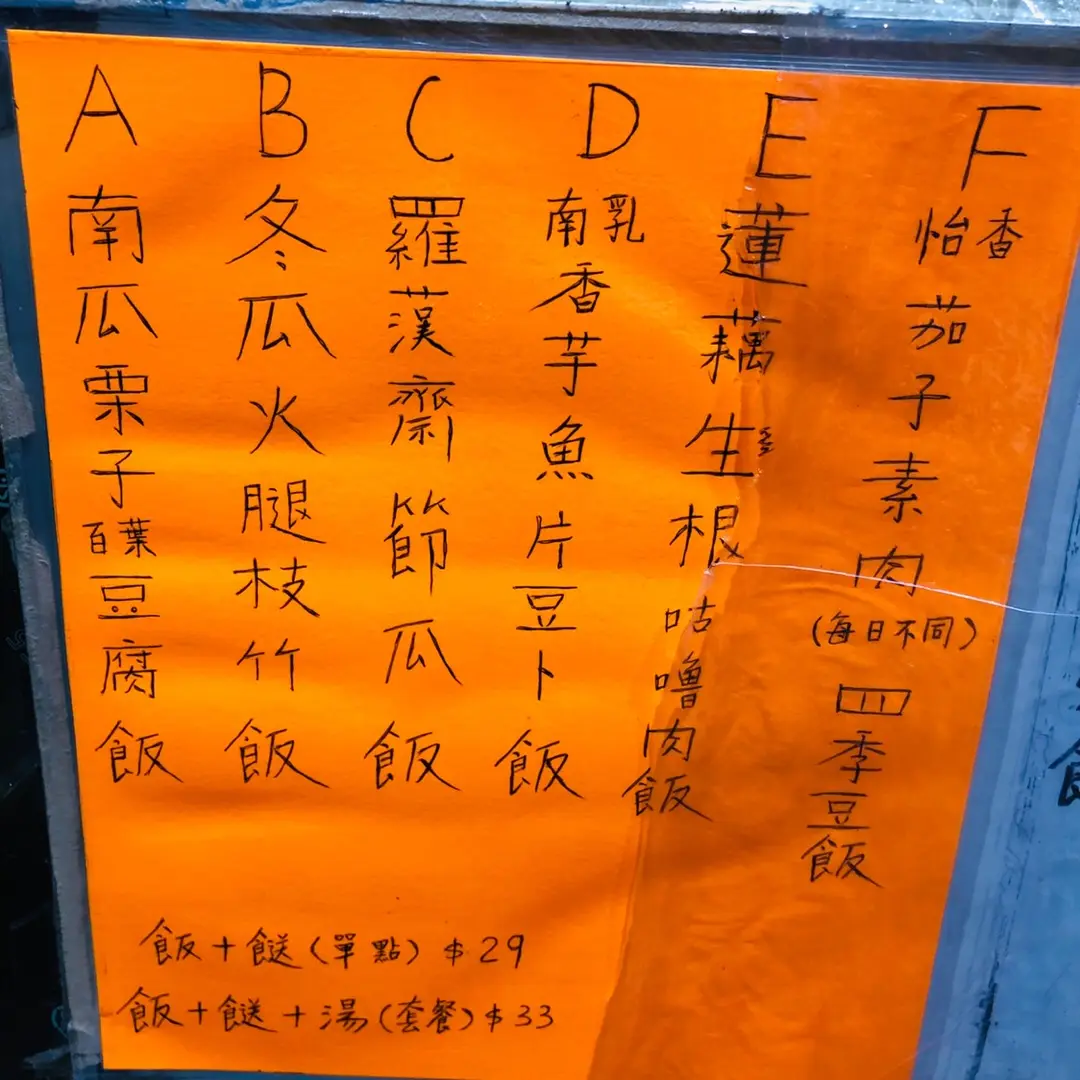 A
南瓜栗子百葉豆腐飯
B
冬瓜火腿枝竹飯
C
羅漢齋節瓜飯
D
南乳香芋魚片豆卜飯
E
蓮藕生根咕嚕肉飯
F
怡香茄子素肉(每日不同)四季豆飯
飯+餸(單點) $29
飯+餸+湯(套餐) $33